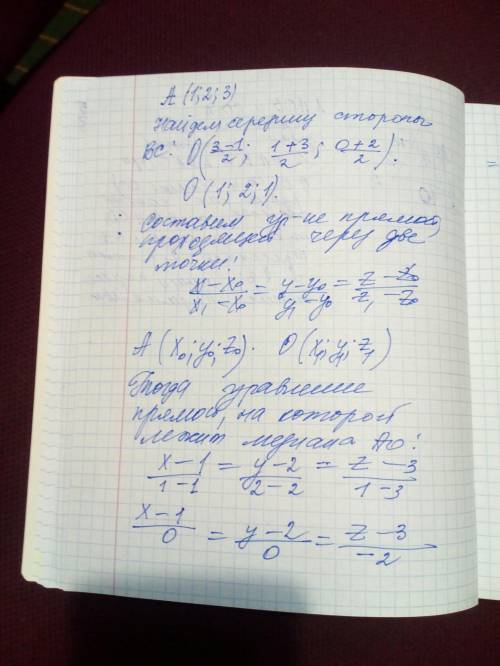 A (1; 2; 3)
Найдем середину стороны
BC: O(3-1/2; 1+3/2; 0+2/2).
O (1; 2; 1).
Составим ур-ие прямой,
проходящей через две
точки:
x-x₀/x₁-x₀ = y-y₀/y₁-y₀ = z-z₀/z₁-z₀
A (x₀; y₀; z₀). O (x₁; y₁; z₁)
Тогда уравнение
прямой, на которой
лежит медиана AO:
x-1/1-1 = y-2/2-2 = z-3/1-3
x-1/0 = y-2/0 = z-3/-2